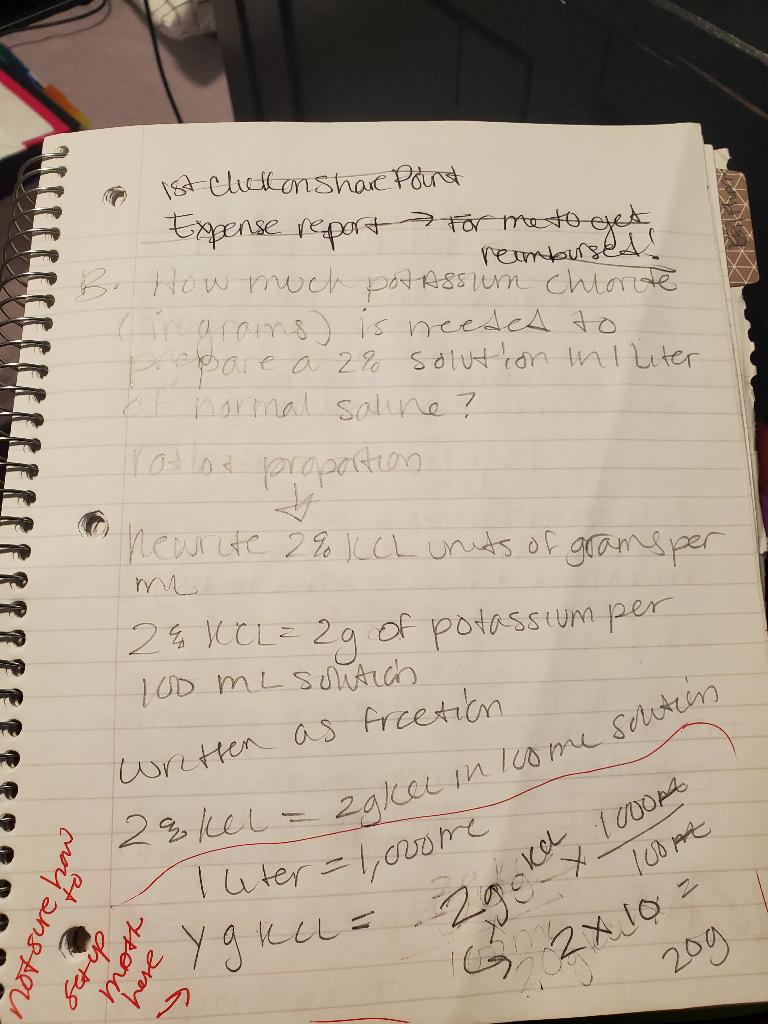 1st Click on Share Point
Expense report → For me to get
reimbursed!
B. How much potassium chloride
(in grams) is needed to
prepare a 2% solution in 1 liter
of normal saline?
proportion
Rewrite 2% KCL units of grams per
mL
2% KCL = 2g of potassium per
100 mL solution
written as fraction
2% KCL = 2g KCL in 100 mL solution
1 Liter = 1,000 mL
y g KCL = 2g KCL x 1000 mL
100 mL
2 x 10 =
20g
not sure how
to
set up
math
here